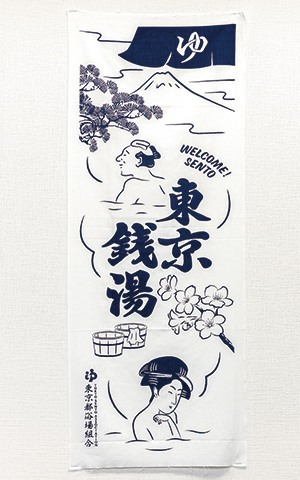 ゆ
WELCOME!
SENTO
東京
銭湯
ゆ
東京都浴場組合